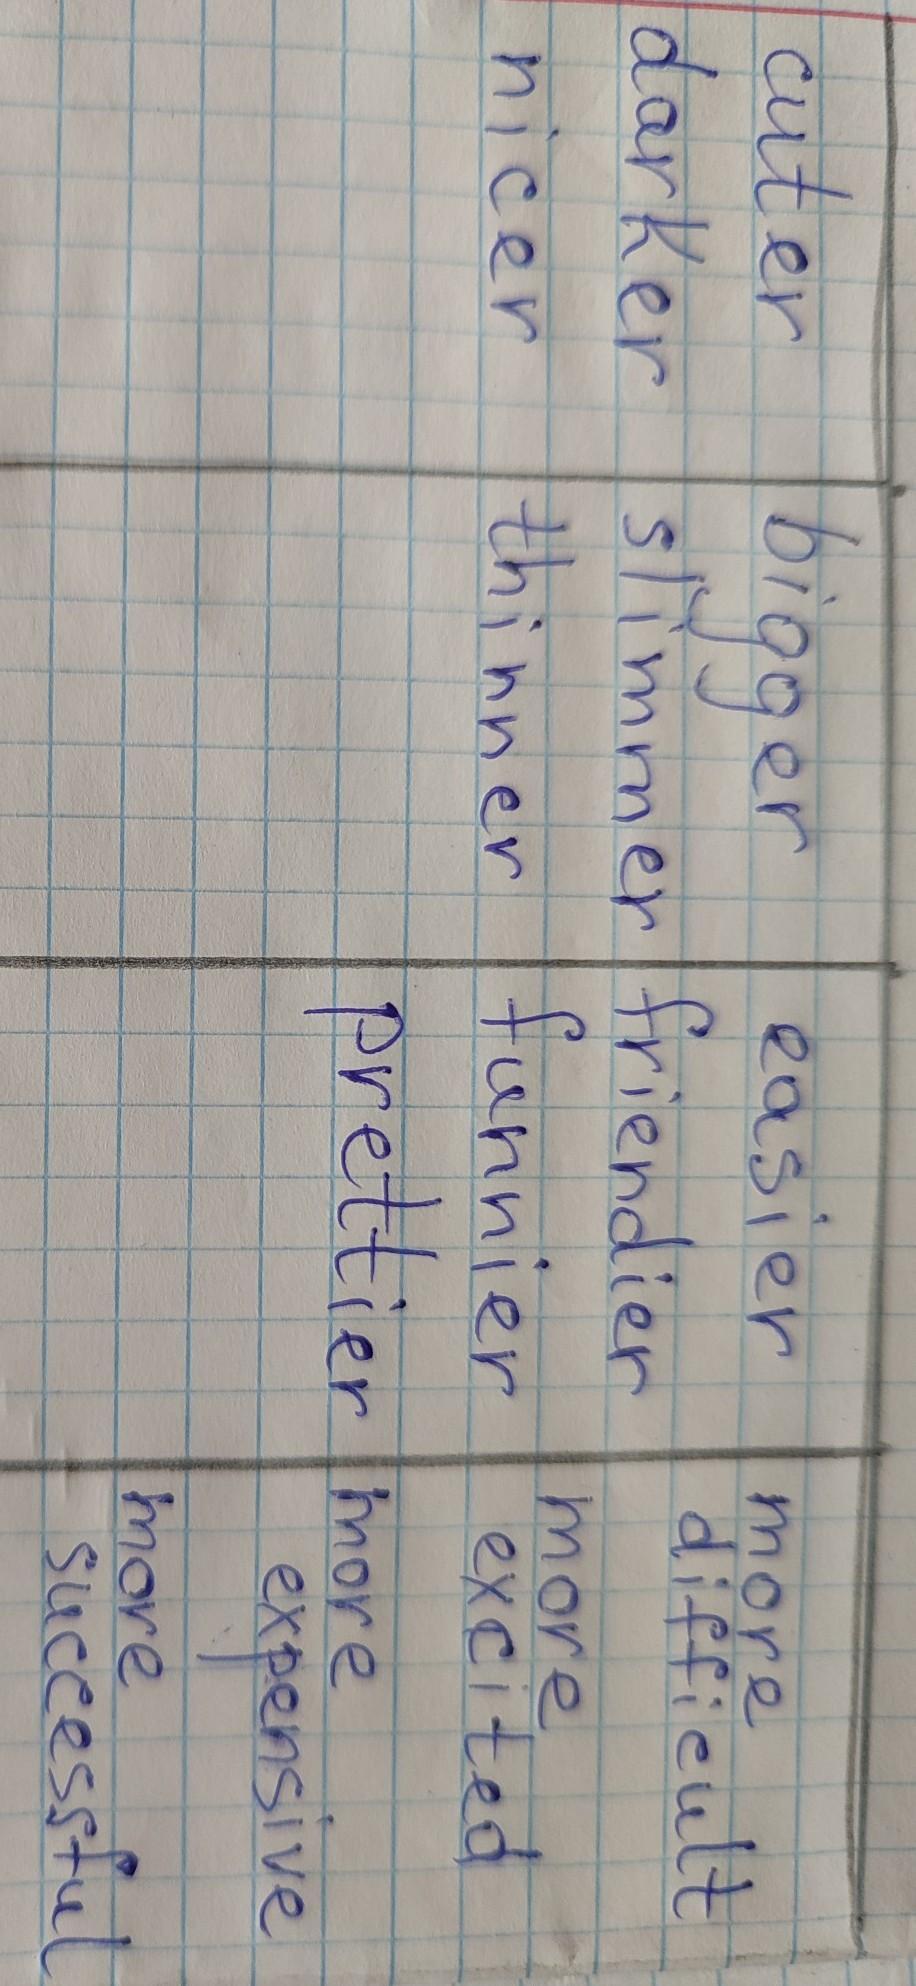 cuter
darker
nicer
bigger
slimmer
thinner
easier
friendier
funnier
prettier
more
difficult
more
excited
more
expensive
more
successful